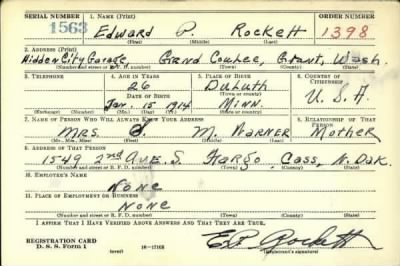 SERIAL NUMBER 1. NAME (Print) ORDER NUMBER
1563 Edward P. Rockett 1398
(First) (Middle) (Last)
2. ADDRESS (Print)
Hidden City Garage, Grand Coulee, Grant, Wash.
(Number and street or R. F. D. number) (Town) (County) (State)
3. TELEPHONE 4. AGE IN YEARS 5. PLACE OF BIRTH 6. COUNTRY OF CITIZENSHIP
26 Duluth
DATE OF BIRTH (Town or county)
Jan. 15 1914 Minn. U.S.A.
(Exchange) (Number) (Mo.) (Day) (Yr.) (State or country)
7. NAME OF PERSON WHO WILL ALWAYS KNOW YOUR ADDRESS 8. RELATIONSHIP OF THAT PERSON
Mrs. M. Warner Mother
(Mr., Mrs., Miss) (First) (Middle) (Last)
9. ADDRESS OF THAT PERSON
1549 2nd Ave. S. Fargo, Cass, N. Dak.
(Number and street or R. F. D. number) (Town) (County) (State)
10. EMPLOYER'S NAME
None
11. PLACE OF EMPLOYMENT OR BUSINESS
None
(Number and street or R. F. D. number) (Town) (County) (State)
I AFFIRM THAT I HAVE VERIFIED ABOVE ANSWERS AND THAT THEY ARE TRUE.
REGISTRATION CARD E.P. Rockett
D. S. S. Form 1 (over) 16-17105 (Registrant's signature)